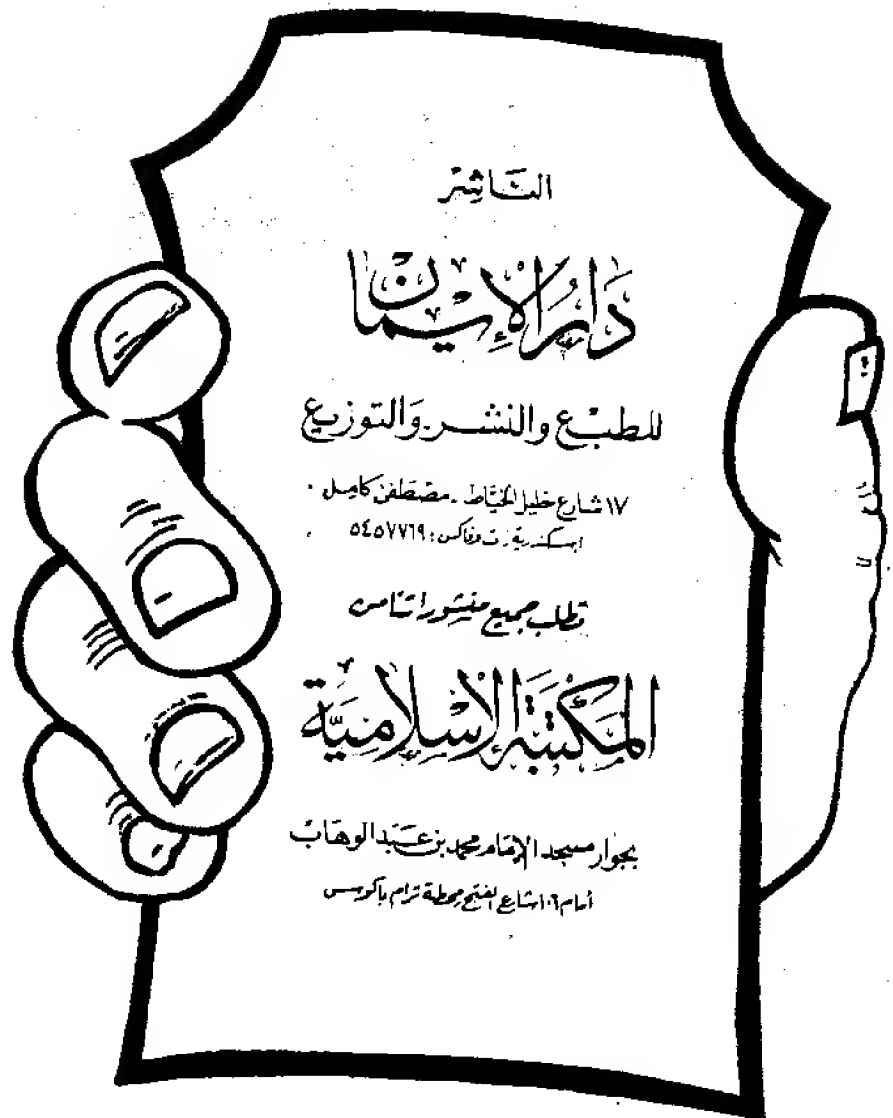 الناشر
دار الإيمان
للطبع والنشر والتوزيع
١٧ شارع خليل الخياط - مصطفى كامل .
اسكندرية : ت وفاكس : ٥٤٥٧٧٦٩
تطلب جميع منشوراتنا من
المكتبة الإسلامية
بجوار مسجد الإمام محمد بن عبد الوهاب
أمام ١٠٦ شارع الفتح محطة ترام باكوس